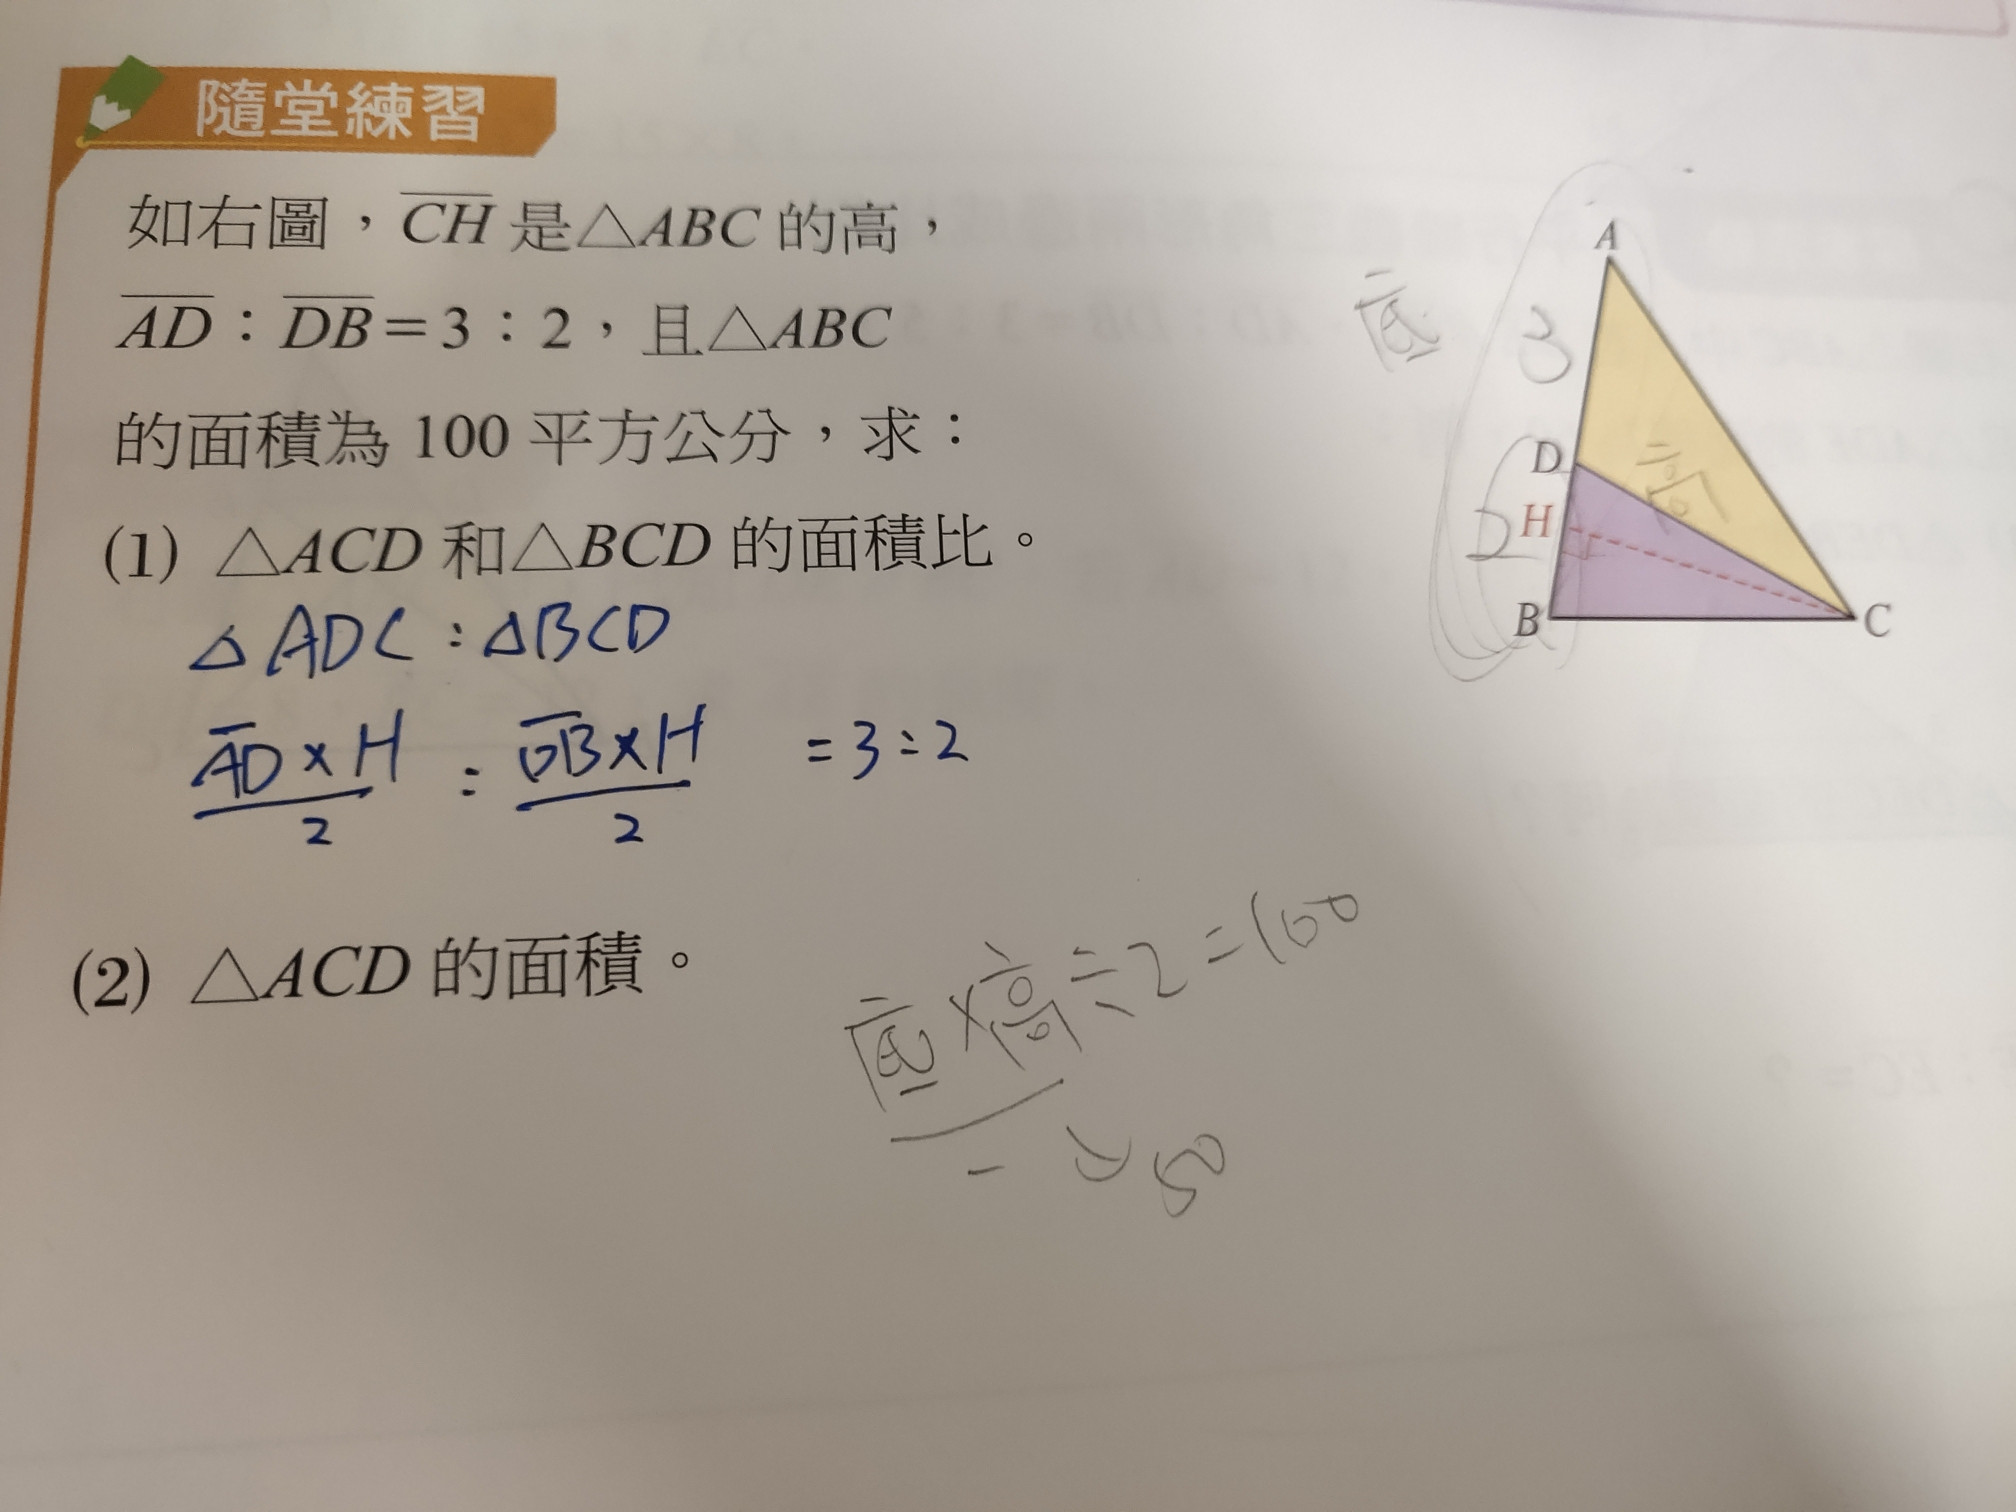 隨堂練習
如右圖，CH 是△ABC 的高，
AD：DB＝3：2，且△ABC
的面積為 100 平方公分，求：
(1) △ACD 和△BCD 的面積比。
△ADC：△BCD
AD×H/2：DB×H/2 ＝3：2
(2) △ACD 的面積。
底×高÷2＝100
A
底
3
D
高
H
2
B
C